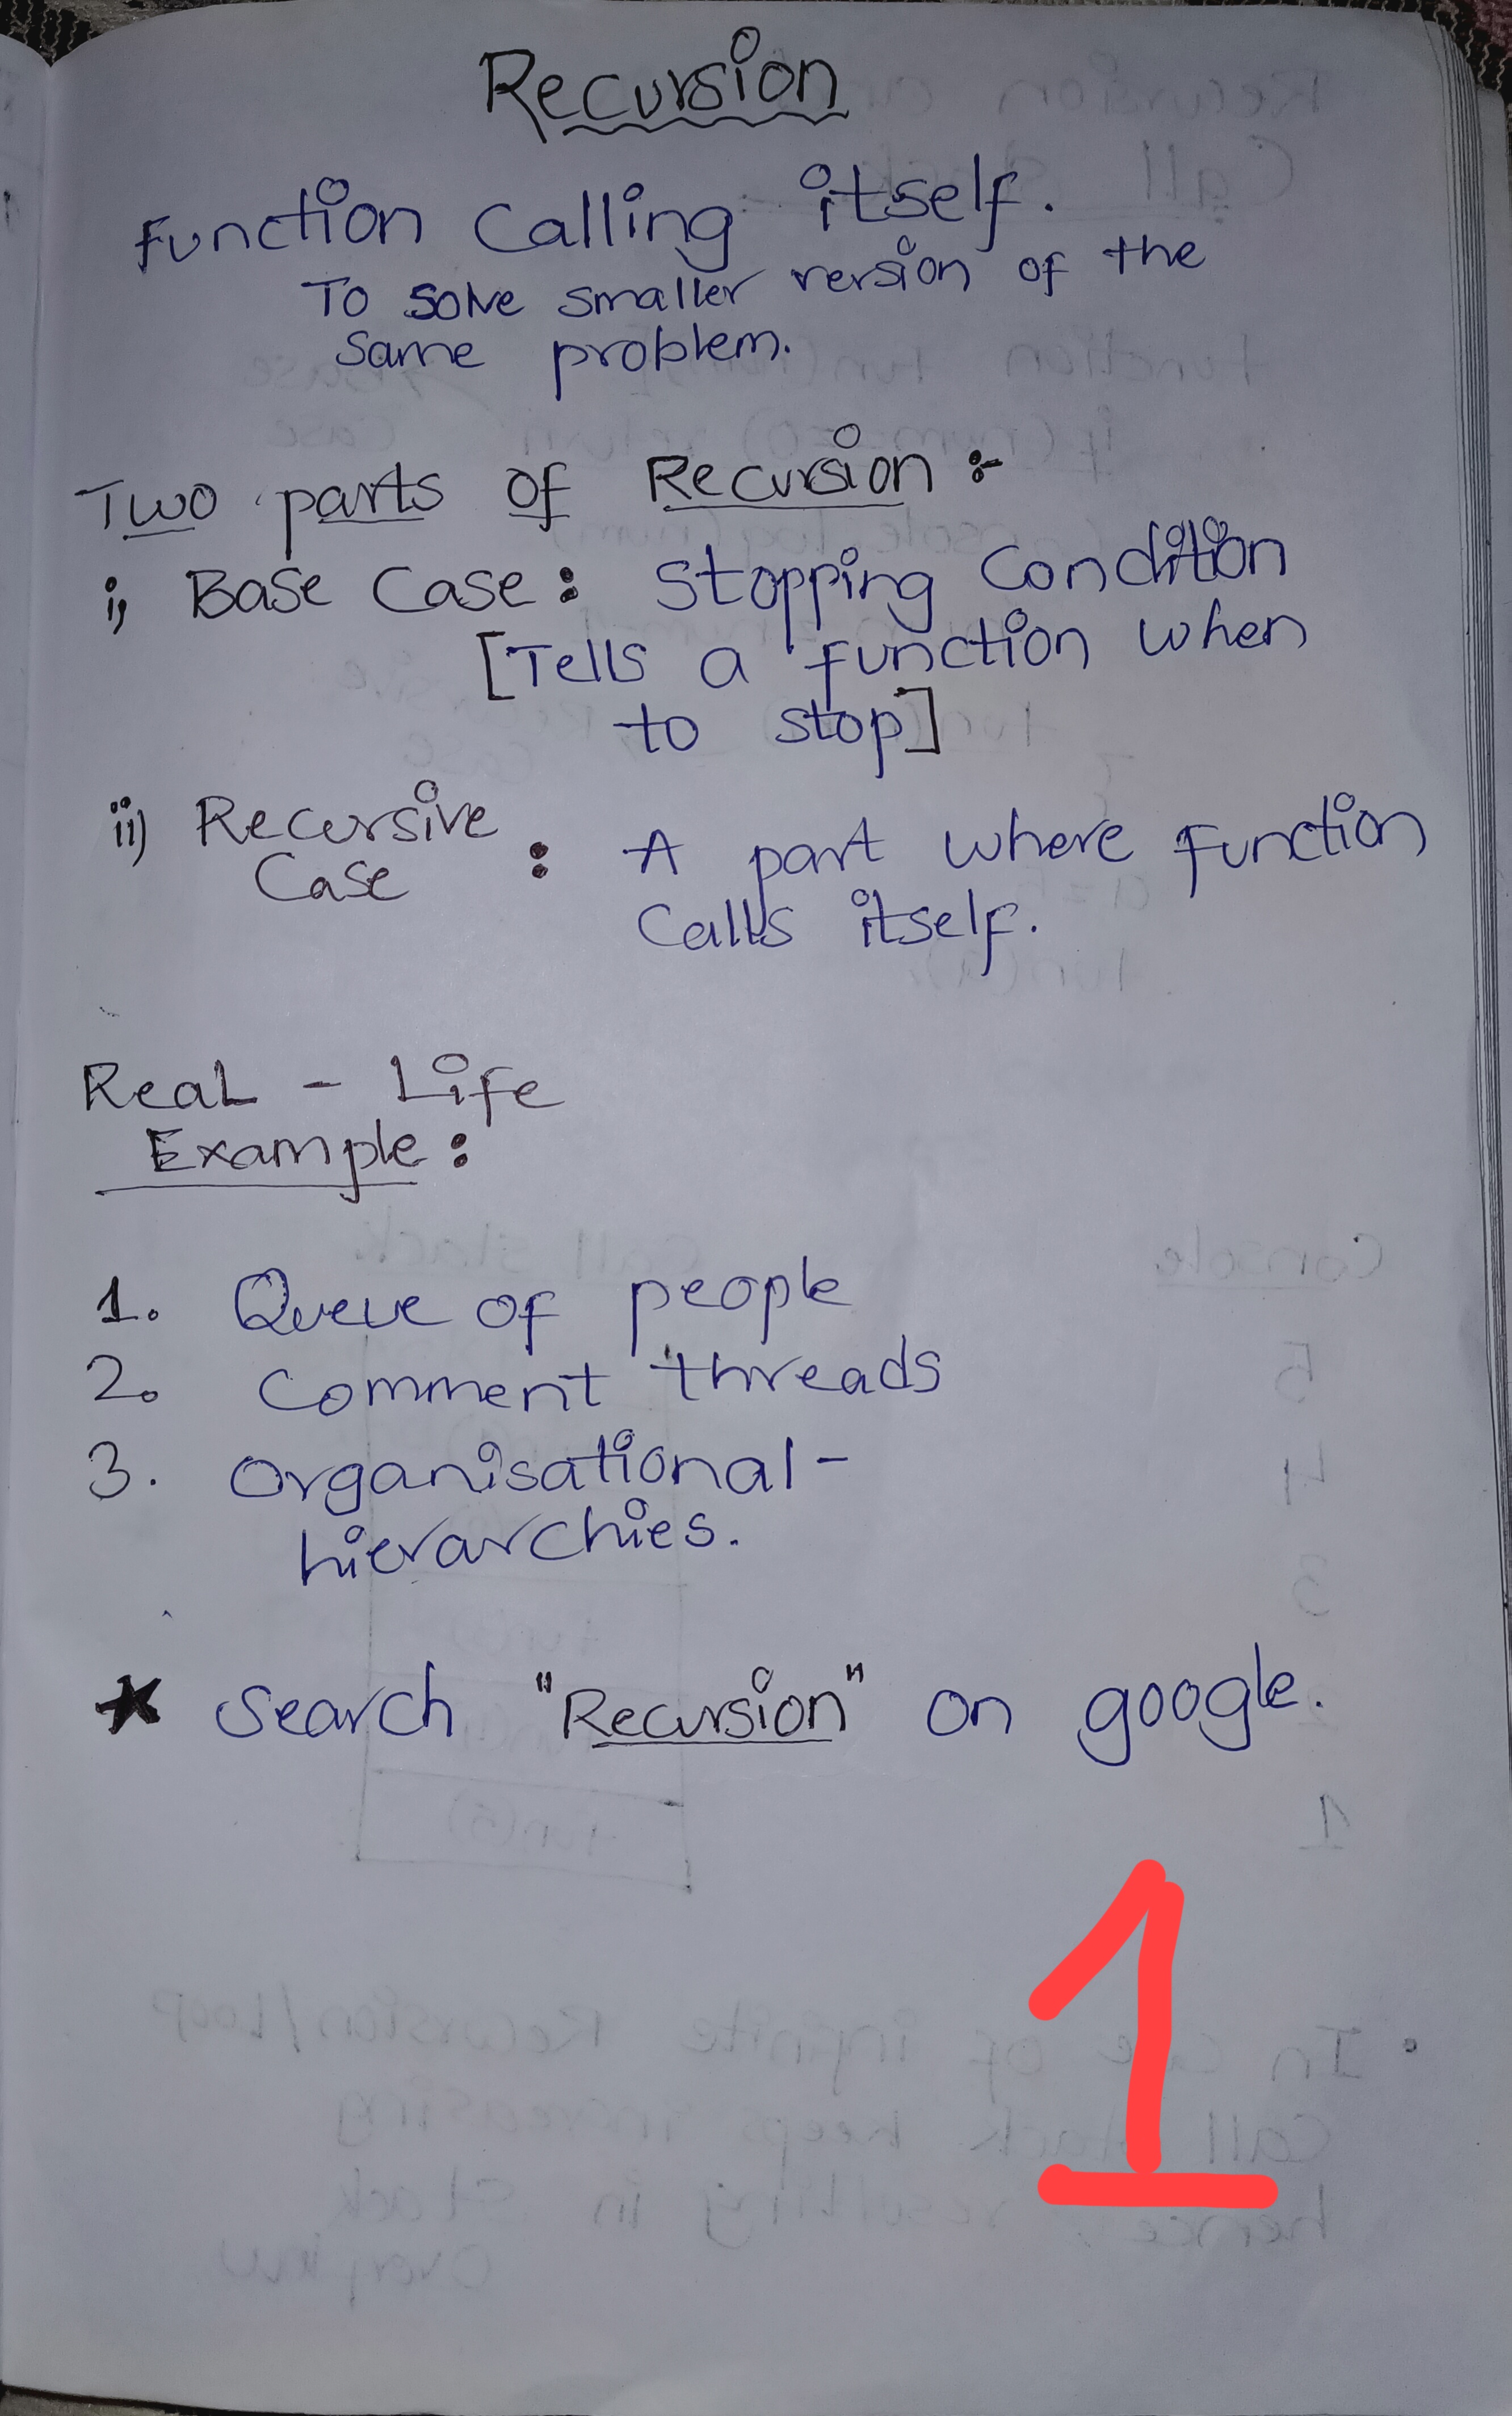 Recursion
Function Calling itself.
To solve smaller version of the
same problem.
Two parts of Recursion :-
i) Base Case : Stopping Condition
[Tells a function when
to stop]
ii) Recursive
Case : A part where function
calls itself.
Real - Life
Example :
1. Queue of people
2. Comment threads
3. Organisational-
hierarchies.
★ Search "Recursion" on google.
1